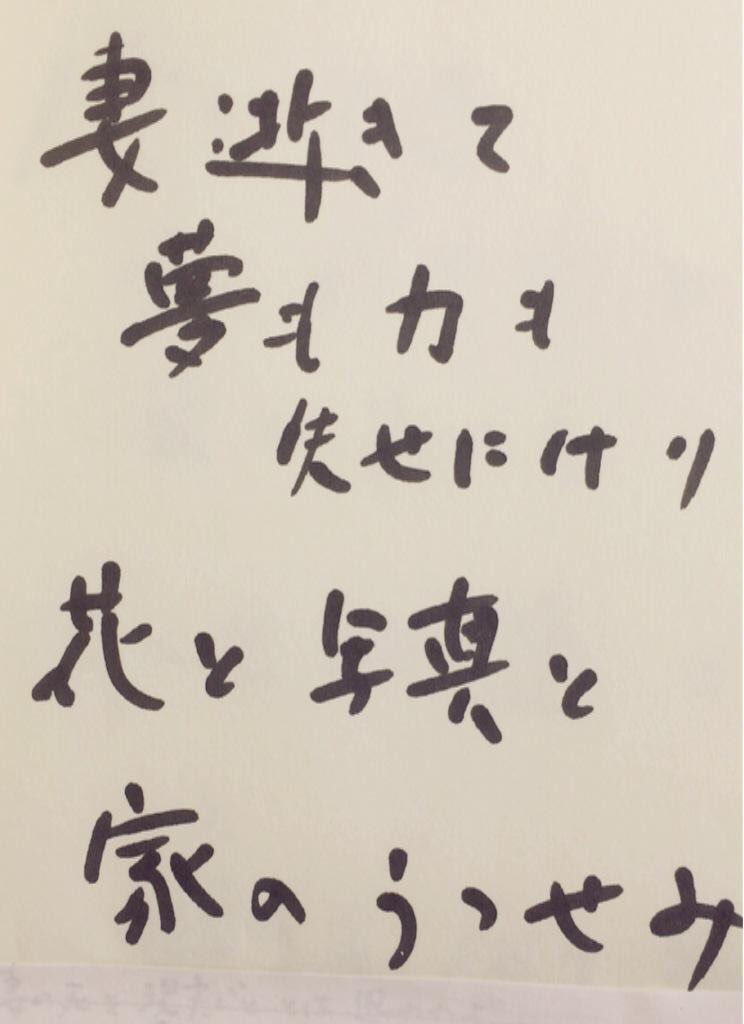 妻逝きて
夢も力も
失せにけり
花と写真と
家のうつせみ